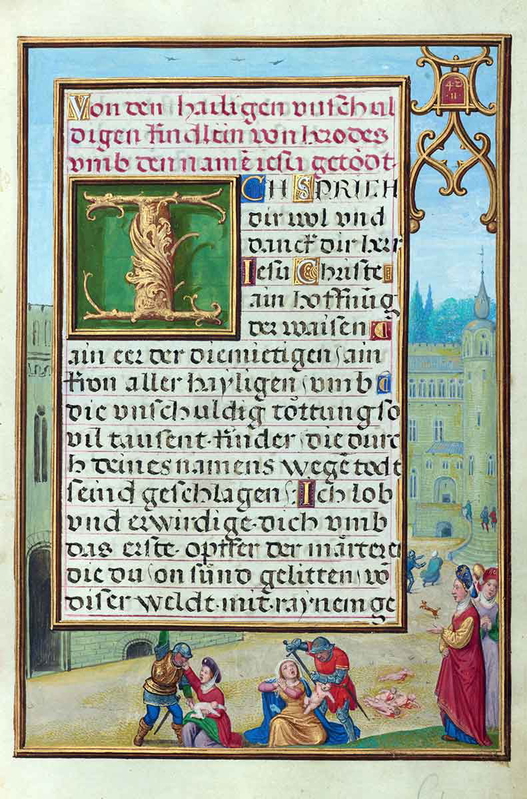 Von den hailigen vnschul
digen kindlein von herodes
vmb den namē iesu getödt.
ICH SPRICH
dir wol vnd
danck dir herr
Iesu Christe
ain hoffnūg
der waisen
ain eer der diemietigen ain
kron aller hayligen vmb
die vnschuldig tottung so
vil tausent kinder die durc
h deines namens wege todt
seind geschlagen Ich lob
vnd erwirdige dich vmb
das erste opffer der martere
die du on sünd gelitten vō
diser weldt mit raynem ge